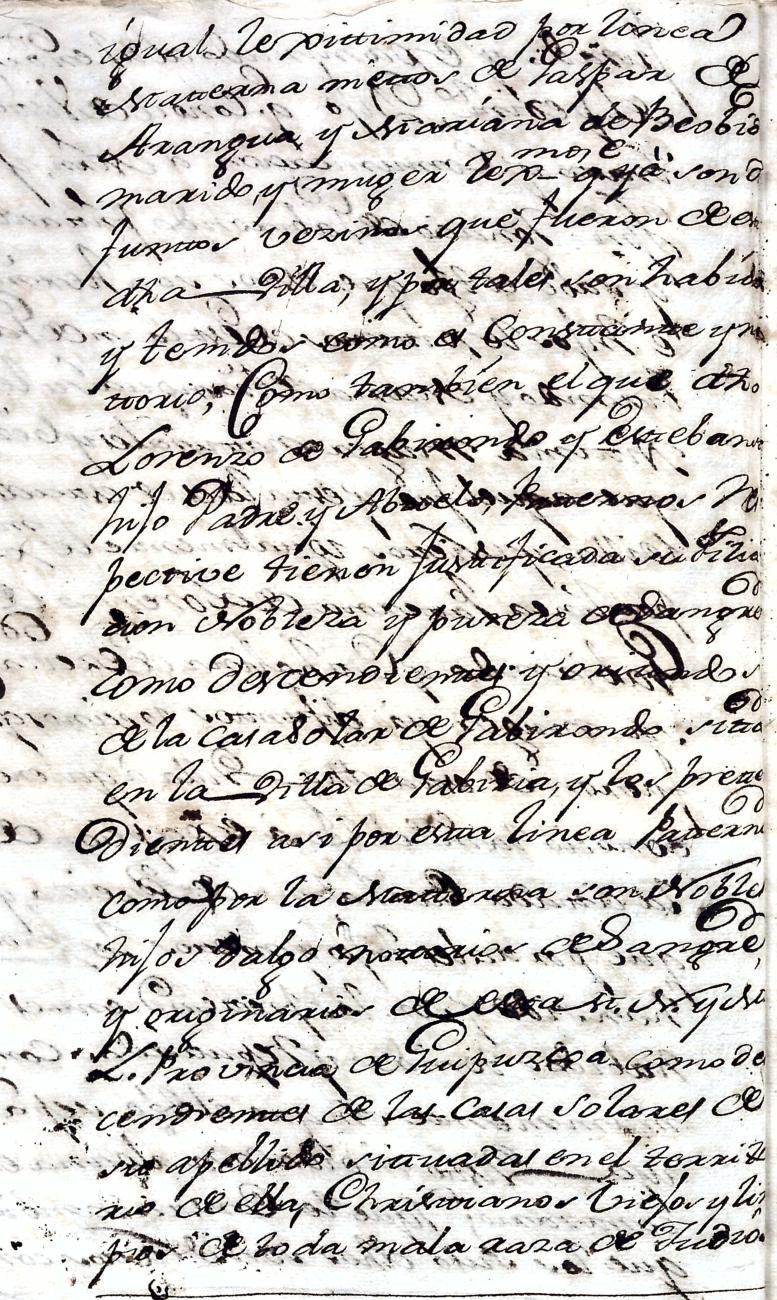 igual lexittimidad por linea
Matterna niettos de Gaspar de
Arangua, y Mariana de Beobid
marido, y muger lexmos e q ya son d
funttos vezinos que fueron de es
dha Villa, y por tales son habid
y tenidos como es Constante y n
ttorio; Como tambien el que dho
Lorenzo de Gabirondo y Esteban
hijo Padre y Abuelo, Patternos Re
pective tienen Justificada su filia
cion Nobleza y pureza de Sangre
como descendientes y oriundos
de la casa solar de Gabirondo sitta
en la Villa de Gabiria, y los preten
dientes asi por esta linea Pattern
como por la Matterna son Noble
hijos dalgo nottorios de Sangre
y originarios de esta M. N. y M
L. Provincia de Guipuzcoa como de
cendientes de las casas solares de
su apellido sittuadas en el territ
rio de ella, Christtianos viejos y lim
pios de toda mala raza de Judio